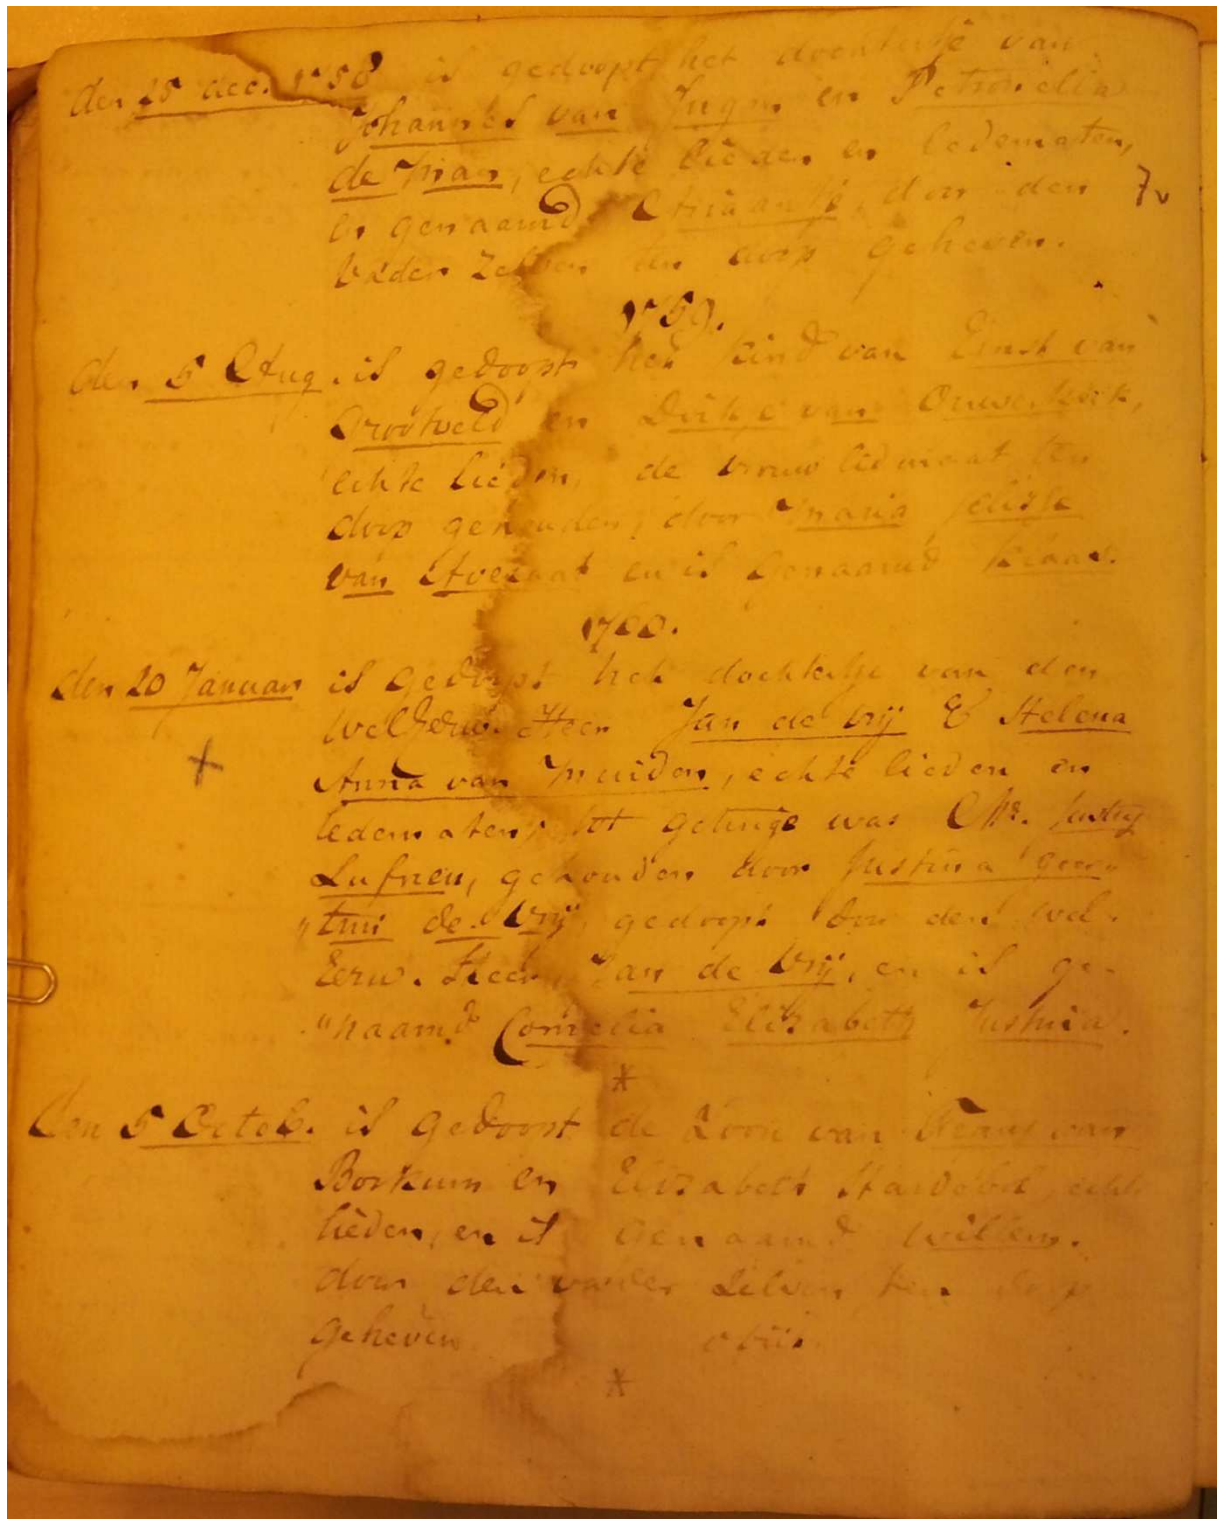 den 25 dec. 1758 is gedoopt het dochtertje van
Johannes van Jugen en Petronella
de Man, echte lieden en ledematen,
en genaamd Ariaantje, door den
Vader zelven ten doop geheven.
7v
1759.
den 5 Aug. is gedoopt het kind van Ernst van
Grootveld en Dirkje van Ouwerkerk,
echte lieden, de vrouw lidmaat ten
doop gehouden, door Maria
van Avezaat en is genaamd Klaas.
1760.
den 20 Januar is gedoopt het dochtertje van den
WelEerw. Heer Jan de Vrij & Helena
Anna van Muiden, echte lieden en
ledematen, tot getuige was Mr.
Lufneu, gehouden door Justina geer-
"trui de Vrij, gedoopt door den wel.
Eerw. Heer Jan de Vrij, en is ge-
"naamd Cornelia Elizabeth Justina.
den 5 Octob. is gedoopt de Zoon van Frans van
Borkum en Elizabeth echte
lieden, en is genaamd willem.
door den vader zelven ten doop
geheven. obiit